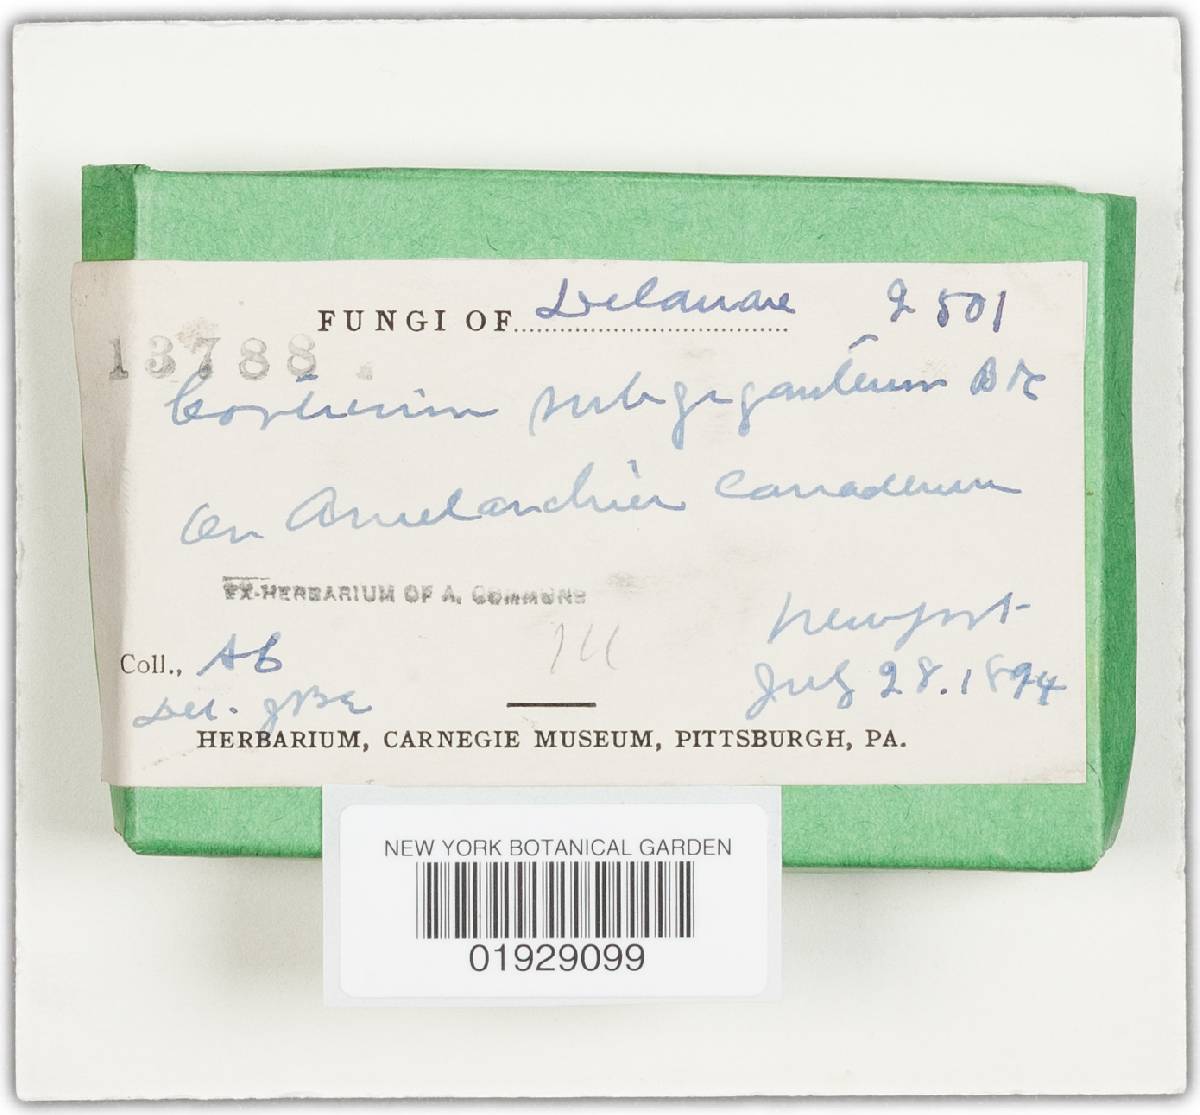 FUNGI OF Delaware 2501
13788.
Corticium subgiganteum B&C
on Amelanchier Canadensis
EX-HERBARIUM OF A. COMMONS
Newport
Coll., AC
July 28. 1894
Det. JBE
HERBARIUM, CARNEGIE MUSEUM, PITTSBURGH, PA.
NEW YORK BOTANICAL GARDEN
01929099